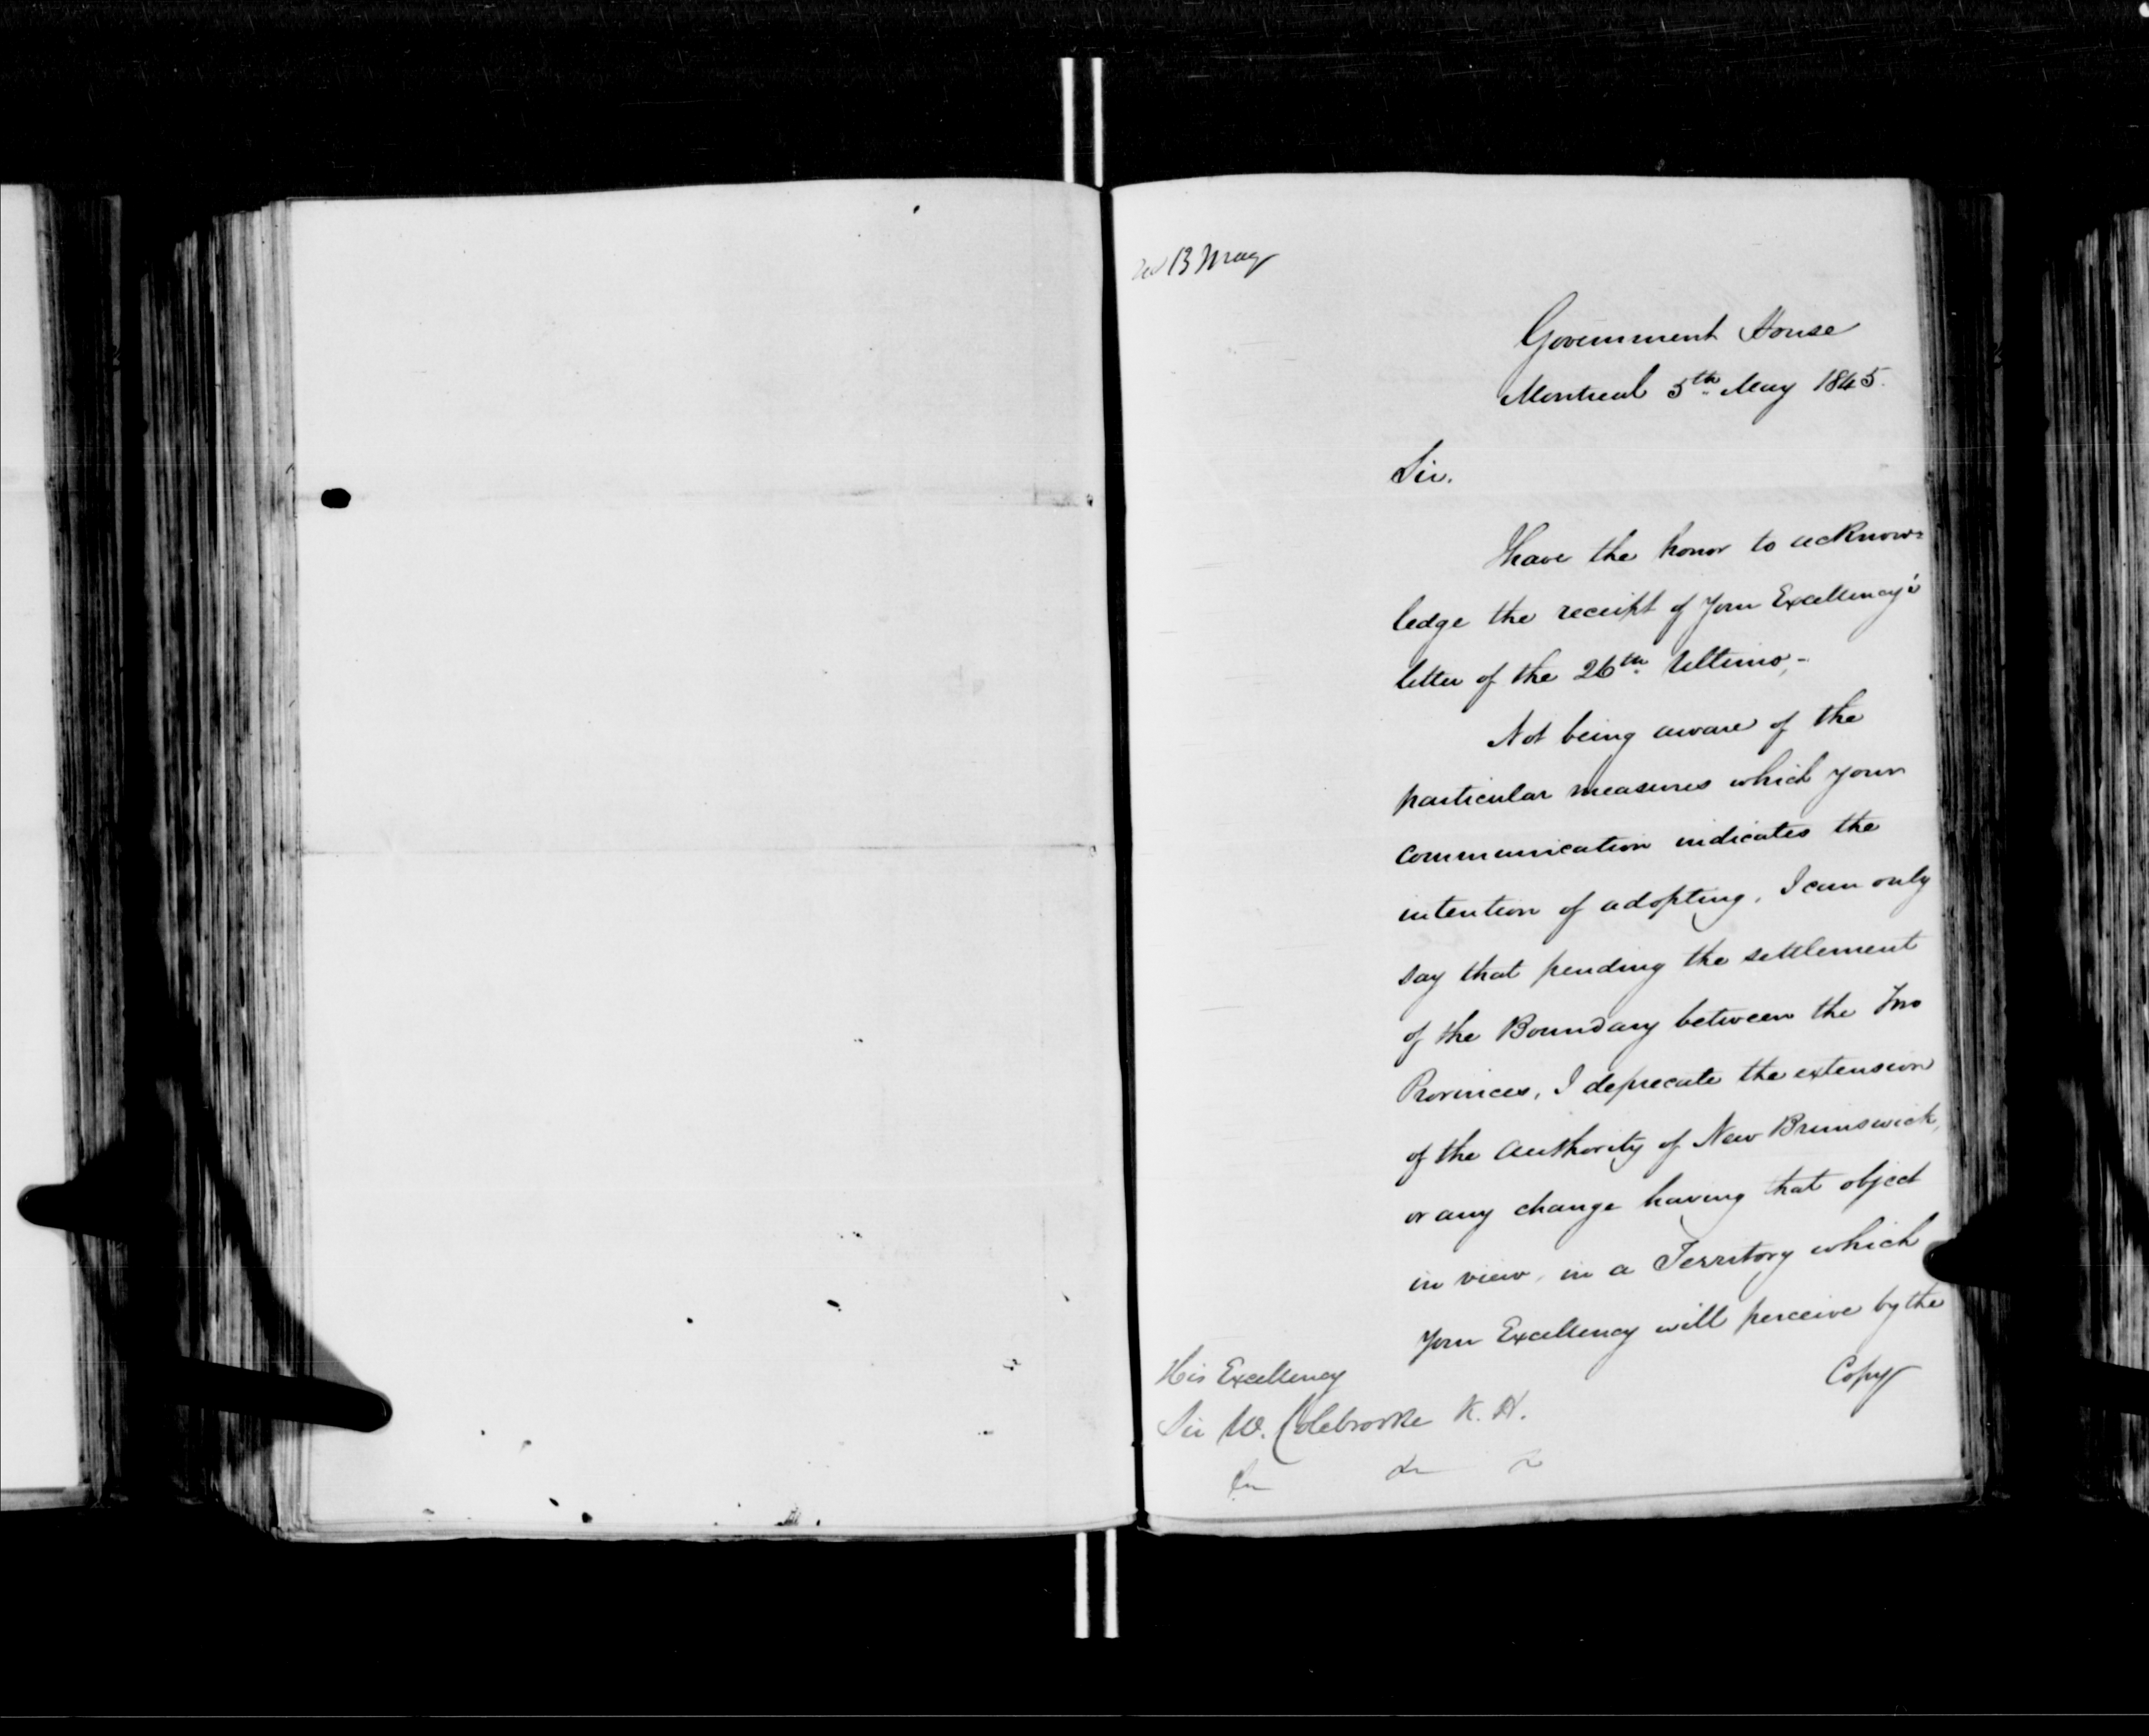 13 May
Government House
Montreal 5th May 1845.
Sir.
I have the honor to acknow=
ledge the receipt of Your Excellency's
letter of the 26th Ultimo,-
Not being aware of the
particular measures which your
communication indicates the
intention of adopting, I can only
say that pending the settlement
of the Boundary between the Two
Provinces, I deprecate the extension
of the authority of New Brunswick,
or any change having that object
in view, in a Territory which
Your Excellency will perceive by the
Copy
His Excellency
Sir W. Colebrooke K. H.